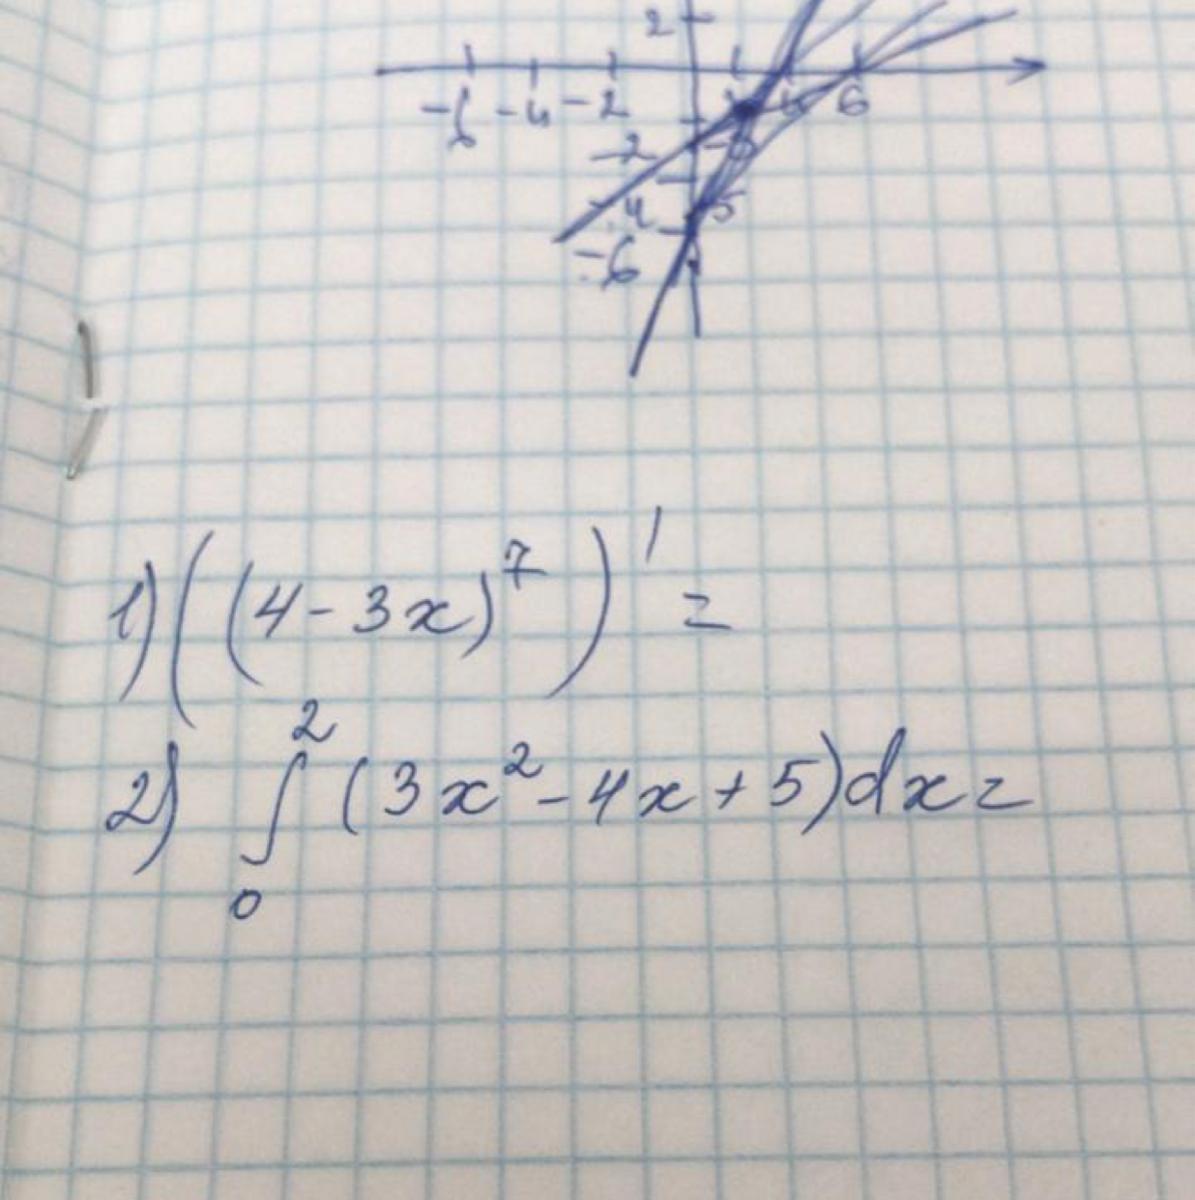 2
-6 -4 -2 2 4 6
-2
-4 5
-6
1) ((4-3x)⁷)' =
2) ∫₀² (3x²-4x+5)dx=